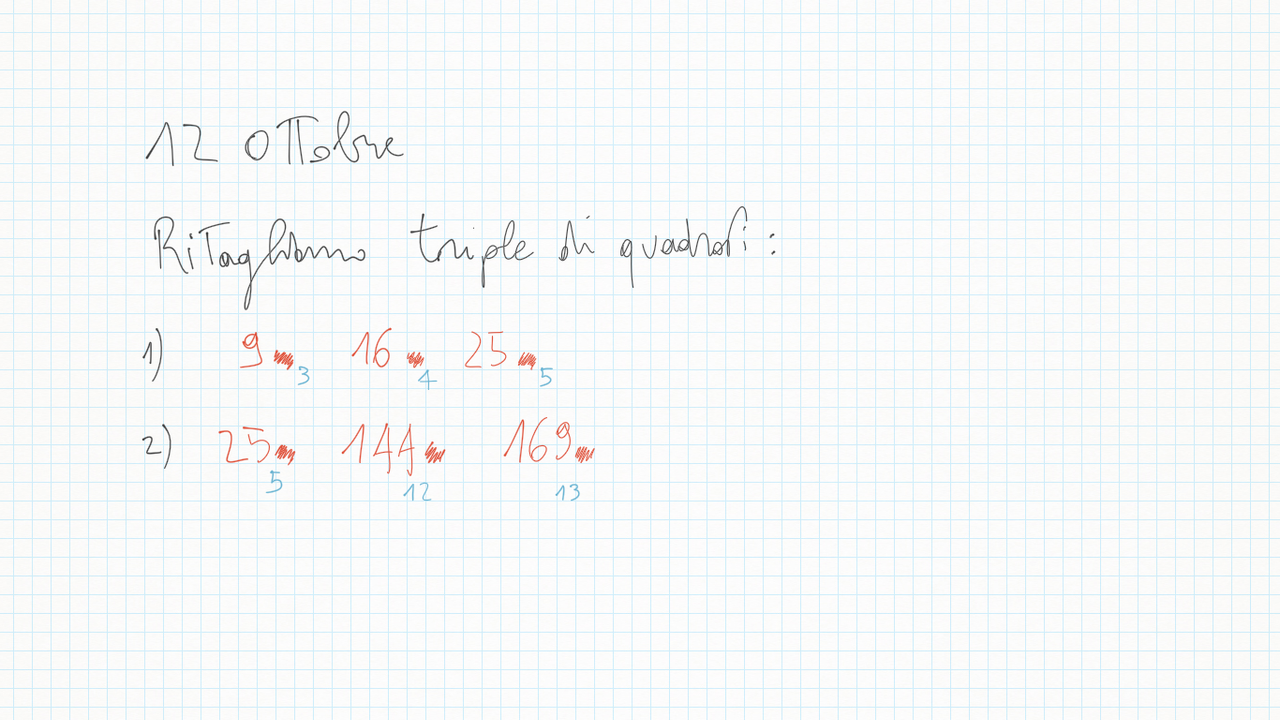 12 Ottobre
Ritagliamo triple di quadrati:
1) 9 16 25
3 4 5
2) 25 144 169
5 12 13